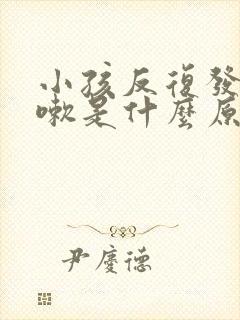 小孩反復發
嗽是什麼原
尹慶德